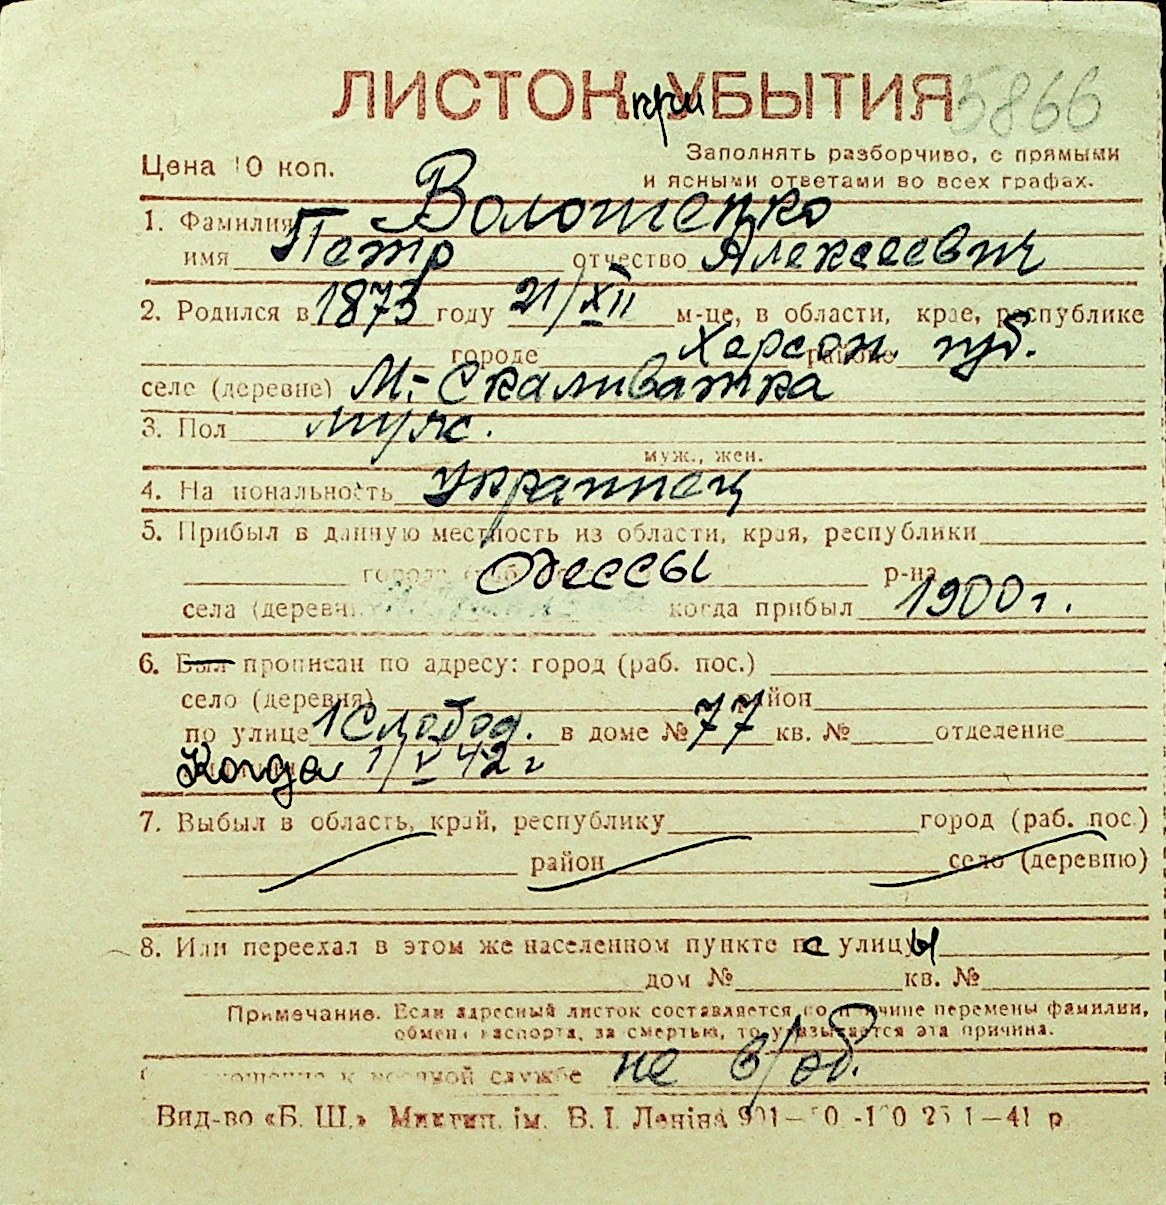 ЛИСТОК при УБЫТИЯ 5866
Цена 10 коп.
Заполнять разборчиво, с прямыми
и ясными ответами во всех графах.
1. Фамилия Волошенко
имя Петр отчество Алексеевич
2. Родился в 1873 году 21/XII м-це, в области, крае, республике
городе Херсон. районе губ.
селе (деревне) М.-Скаливатка
3. Пол муж.
муж., жен.
4. Национальность украинец
5. Прибыл в данную местность из области, края, республики
города Одессы р-на
села (деревни) когда прибыл 1900 г.
6. Был прописан по адресу: город (раб. пос.)
село (деревня) район
по улице 1 Слобод. в доме № 77 кв. № отделение
Когда 1/V 42 г
7. Выбыл в область, край, республику город (раб. пос.)
район село (деревню)
8. Или переехал в этом же населенном пункте с улицы
дом № кв. №
Примечание. Если адресный листок составляется по причине перемены фамилии,
обмена паспорта, за смертью, то указывается эта причина.
к военной службе не в/об.
Вид-во «Б. Ш.» Миктип. ім. В. І. Леніна 1—41 р